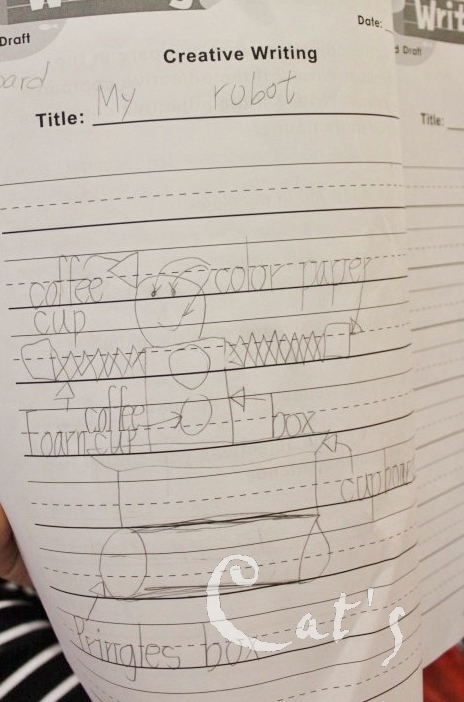 Draft
Date:
Draft
Creative Writing
Title: My robot
Title:
coffee
color paper
cup
coffee
Foam cup
box
Pringles box
Cat's